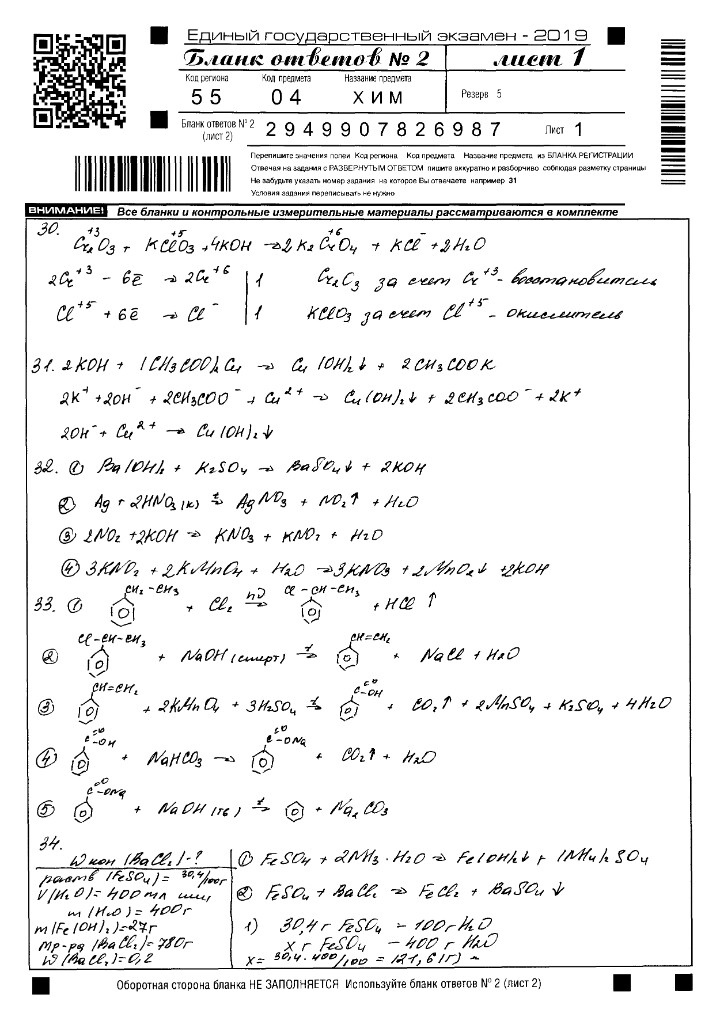 Единый государственный экзамен - 2019
Бланк ответов № 2
лист 1
Код региона Код предмета Название предмета
55 04 ХИМ
Резерв 5
Бланк ответов № 2 (лист 2)
2949907826987
Лист 1
Перепишите значения полей Код региона Код предмета Название предмета из БЛАНКА РЕГИСТРАЦИИ
Отвечая на задания с РАЗВЕРНУТЫМ ОТВЕТОМ пишите аккуратно и разборчиво соблюдая разметку страницы
Не забудьте указать номер задания на которое Вы отвечаете например 31
Условия задания переписывать не нужно
ВНИМАНИЕ! Все бланки и контрольные измерительные материалы рассматриваются в комплекте
+3 +5 +6
30. Cr₂O₃ + KClO₃ + 4KOH → 2K₂CrO₄ + KCl⁻ + 2H₂O
2Cr⁺³ - 6ē → 2Cr⁺⁶ | 1 Cr₂O₃ за счет Cr⁺³ - восстановитель
Cl⁺⁵ + 6ē → Cl⁻ | 1 KClO₃ за счет Cl⁺⁵ - окислитель
31. 2KOH + (CH₃COO)₂Cu → Cu(OH)₂↓ + 2CH₃COOK
2K⁺ + 2OH⁻ + 2CH₃COO⁻ + Cu²⁺ → Cu(OH)₂↓ + 2CH₃COO⁻ + 2K⁺
2OH⁻ + Cu²⁺ → Cu(OH)₂↓
32. ① Ba(OH)₂ + K₂SO₄ → BaSO₄↓ + 2KOH
② Ag + 2HNO₃(к) t→ AgNO₃ + NO₂↑ + H₂O
③ 2NO₂ + 2KOH → KNO₃ + KNO₂ + H₂O
④ 3KNO₂ + 2KMnO₄ + H₂O → 3KNO₃ + 2MnO₂↓ + 2KOH
CH₂-CH₃ Cl-CH-CH₃
33. ① + Cl₂ hν→ + HCl ↑
Cl-CH-CH₃ CH=CH₂
② + NaOH(спирт) t→ + NaCl + H₂O
CH=CH₂ C=O -OH
③ + 2KMnO₄ + 3H₂SO₄ t→ + CO₂↑ + 2MnSO₄ + K₂SO₄ + 4H₂O
C=O -OH C=O -ONa
④ + NaHCO₃ → + CO₂↑ + H₂O
C=O -ONa
⑤ + NaOH(тв) t→ + Na₂CO₃
34.
W кон (BaCl₂) - ?
раств (FeSO₄) = 30,4/100г
V(H₂O) = 400 мл или
m(H₂O) = 400г
m(Fe(OH)₂) = 27г
Mр-ра (BaCl₂) = 780г
W(BaCl₂) = 0,2
① FeSO₄ + 2NH₃·H₂O → Fe(OH)₂↓ + (NH₄)₂SO₄
② FeSO₄ + BaCl₂ → FeCl₂ + BaSO₄↓
1) 30,4г FeSO₄ - 100г H₂O
x г FeSO₄ - 400 г H₂O
x = 30,4·400/100 = 121,6(г) -
Оборотная сторона бланка НЕ ЗАПОЛНЯЕТСЯ Используйте бланк ответов № 2 (лист 2)